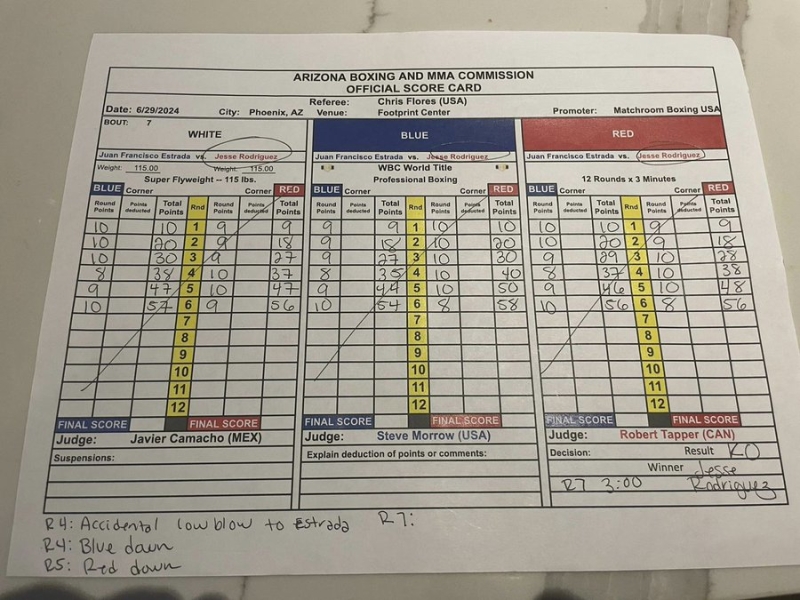 ARIZONA BOXING AND MMA COMMISSION
OFFICIAL SCORE CARD
Referee: Chris Flores (USA)
Date: 6/29/2024 City: Phoenix, AZ Venue: Footprint Center Promoter: Matchroom Boxing USA
BOUT: 7
WHITE BLUE RED
Juan Francisco Estrada vs. Jesse Rodriguez Juan Francisco Estrada vs. Jesse Rodriguez Juan Francisco Estrada vs. Jesse Rodriguez
Weight: 115.00 Weight: 115.00 WBC World Title
Super Flyweight -- 115 lbs. Professional Boxing 12 Rounds x 3 Minutes
BLUE Corner Corner RED BLUE Corner Corner RED BLUE Corner Corner RED
Round Points Points deducted Total Points Rnd Round Points Points deducted Total Points Round Points Points deducted Total Points Rnd Round Points Points deducted Total Points Round Points Points deducted Total Points Rnd Round Points Points deducted Total Points
10 10 1 9 9 9 9 1 10 10 10 10 1 9 9
10 20 2 9 18 9 18 2 10 20 10 20 2 9 18
10 30 3 9 27 9 27 3 10 30 9 29 3 10 28
8 38 4 10 37 8 35 4 10 40 8 37 4 10 38
9 47 5 10 47 9 44 5 10 50 9 46 5 10 48
10 57 6 9 56 10 54 6 8 58 10 56 6 8 56
7 7 7
8 8 8
9 9 9
10 10 10
11 11 11
12 12 12
FINAL SCORE FINAL SCORE FINAL SCORE FINAL SCORE FINAL SCORE FINAL SCORE
Judge: Javier Camacho (MEX) Judge: Steve Morrow (USA) Judge: Robert Tapper (CAN)
Suspensions: Explain deduction of points or comments: Decision: Result KO
Winner Jesse Rodriguez
R7 3:00
R4: Accidental low blow to Estrada R7:
R4: Blue down
R5: Red down